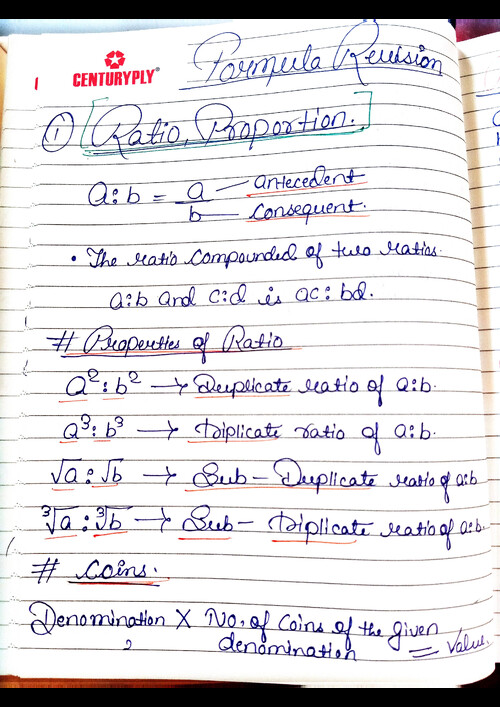 CENTURYPLY
Formula Revision
① Ratio, Proportion.
a:b = a — antecedent
b — Consequent.
• The ratio compounded of two ratios
a:b and c:d is ac : bd.
# Properties of Ratio
a²:b² → Duplicate ratio of a:b.
a³:b³ → Triplicate ratio of a:b.
√a:√b → Sub-Duplicate ratio of a:b
∛a:∛b → Sub-Triplicate ratio of a:b.
# Coins.
Denomination X No. of Coins of the given
denomination = Value.